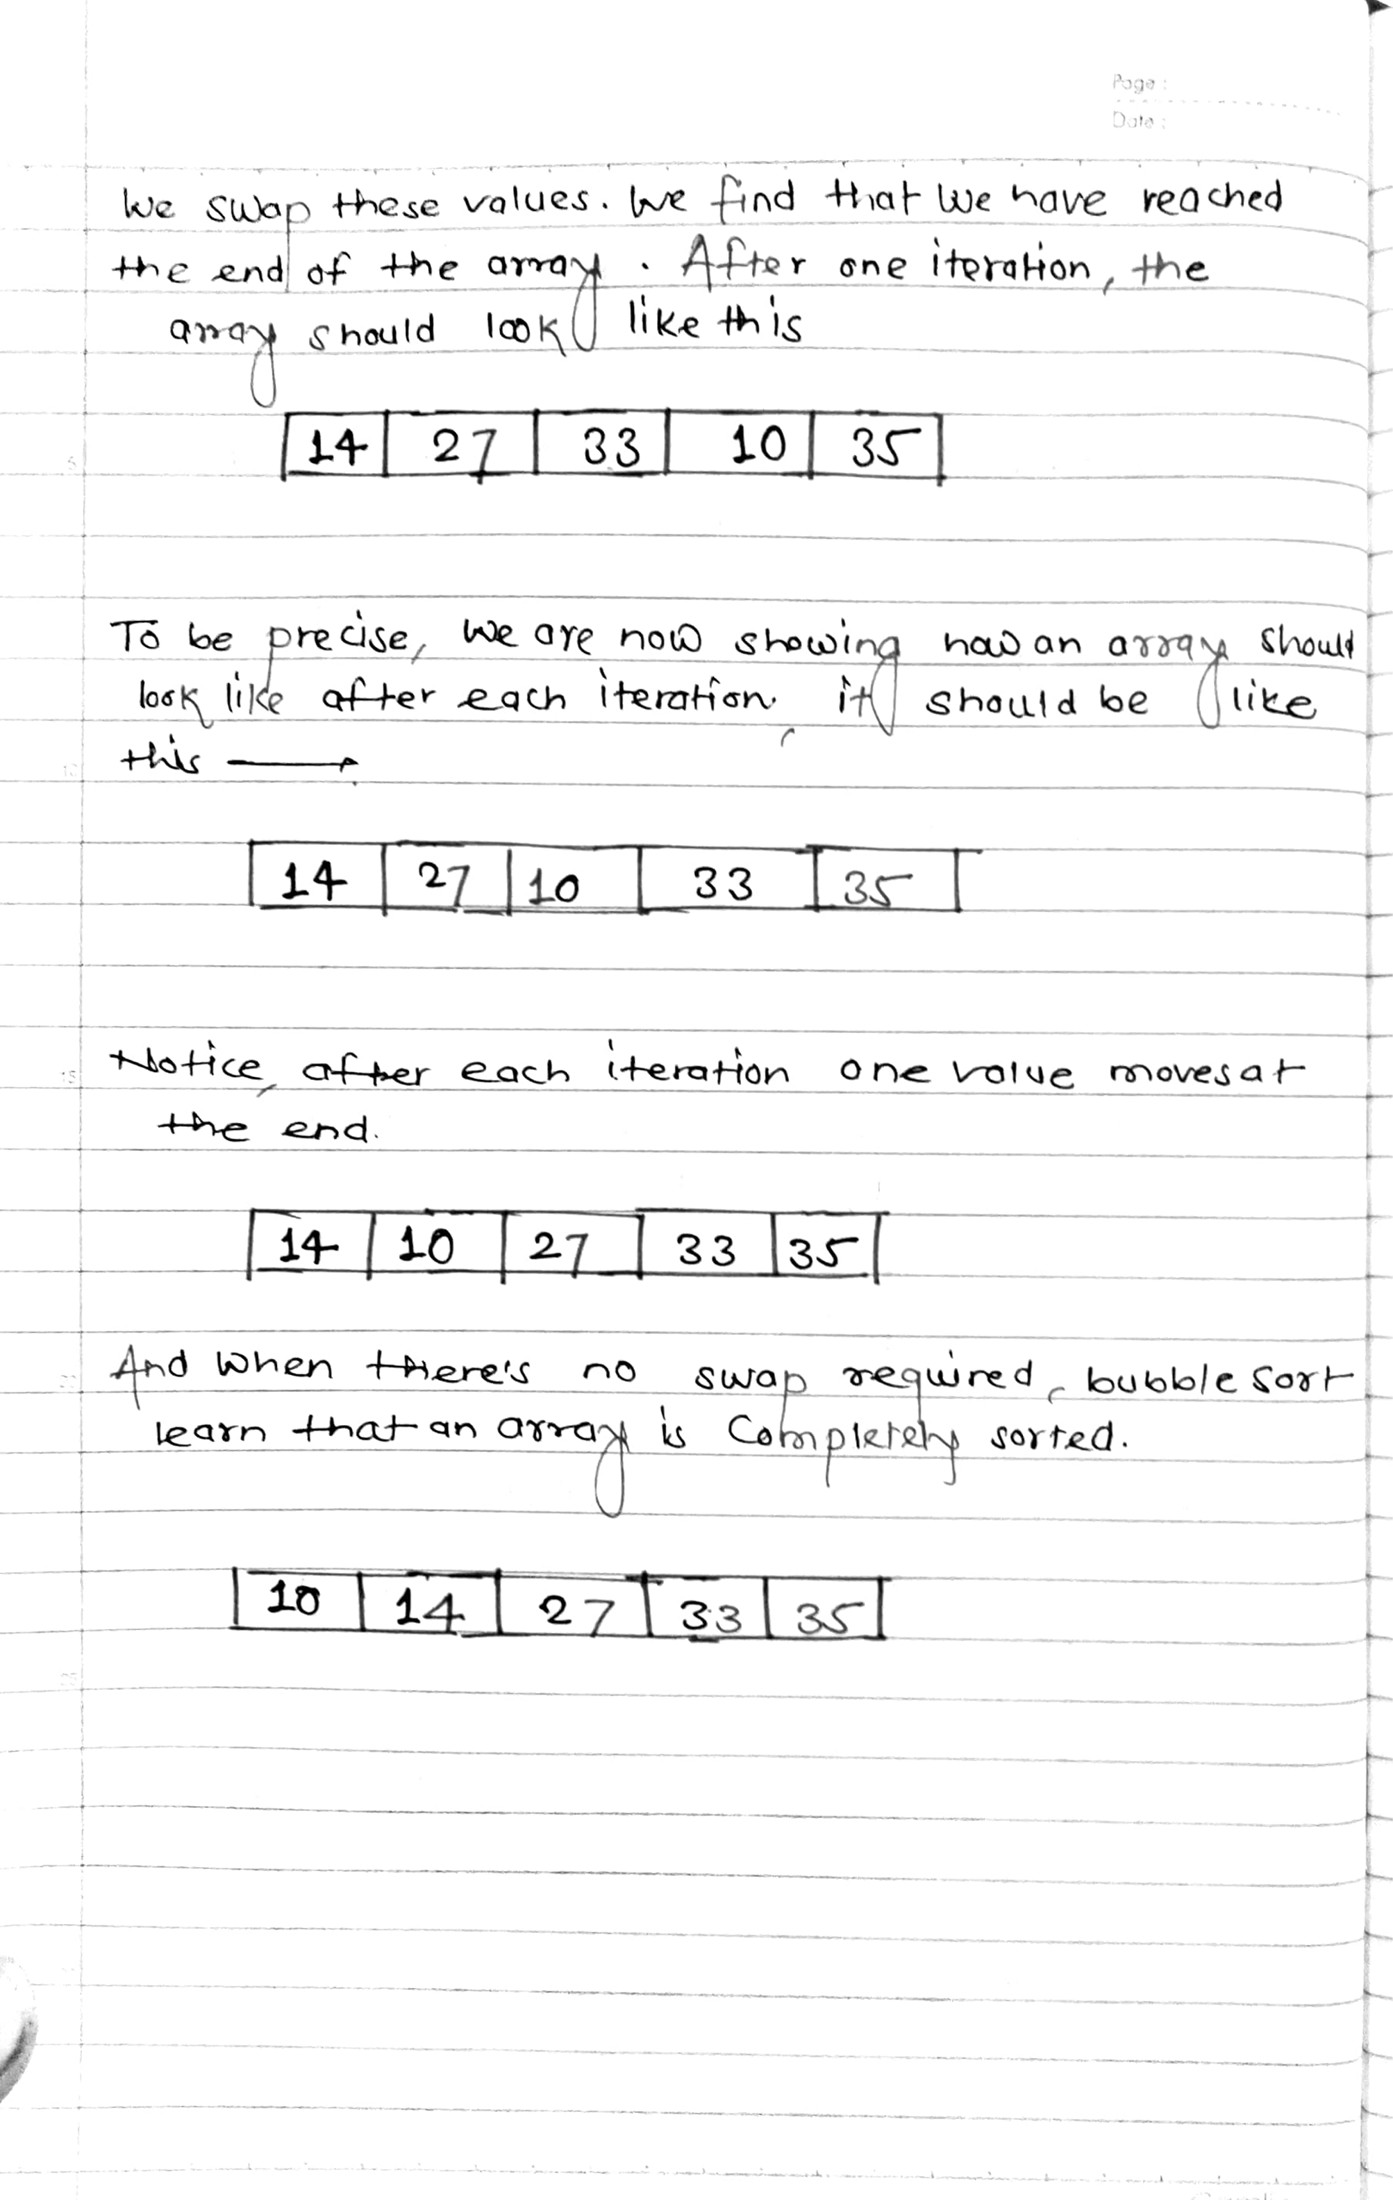 Page :
Date :
We swap these values. We find that we have reached
the end of the array. After one iteration, the
array should look like this
14 27 33 10 35
To be precise, we are now showing how an array should
look like after each iteration. it should be like
this →
14 27 10 33 35
Notice, after each iteration one value moves at
the end.
14 10 27 33 35
And when there's no swap required, bubble sort
learn that an array is completely sorted.
10 14 27 33 35